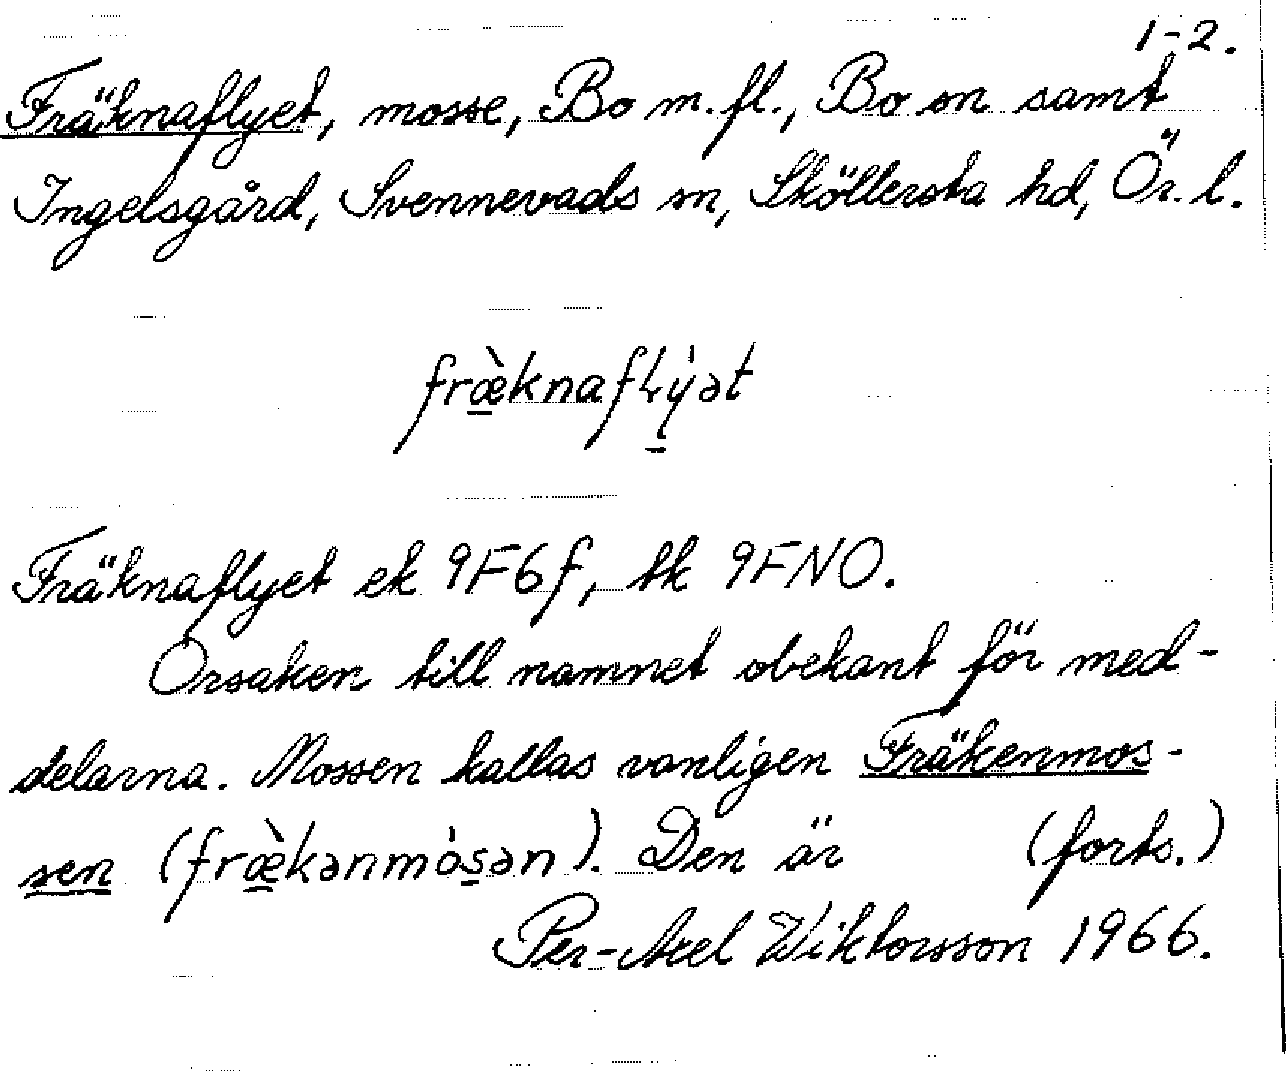 1-2.
Fräknaflyet, mosse, Bo m.fl., Bo sn samt
Ingelsgård, Svennevads sn, Sköllersta hd, Ör. l.
fræ̀knaflýət
Fräknaflyet ek 9F6f, tk 9FNO.
Orsaken till namnet obekant för med-
delarna. Mossen kallas vanligen Fräkenmos-
sen (fræ̀kənmósən). Den är (forts.)
Per-Axel Wiktorsson 1966.